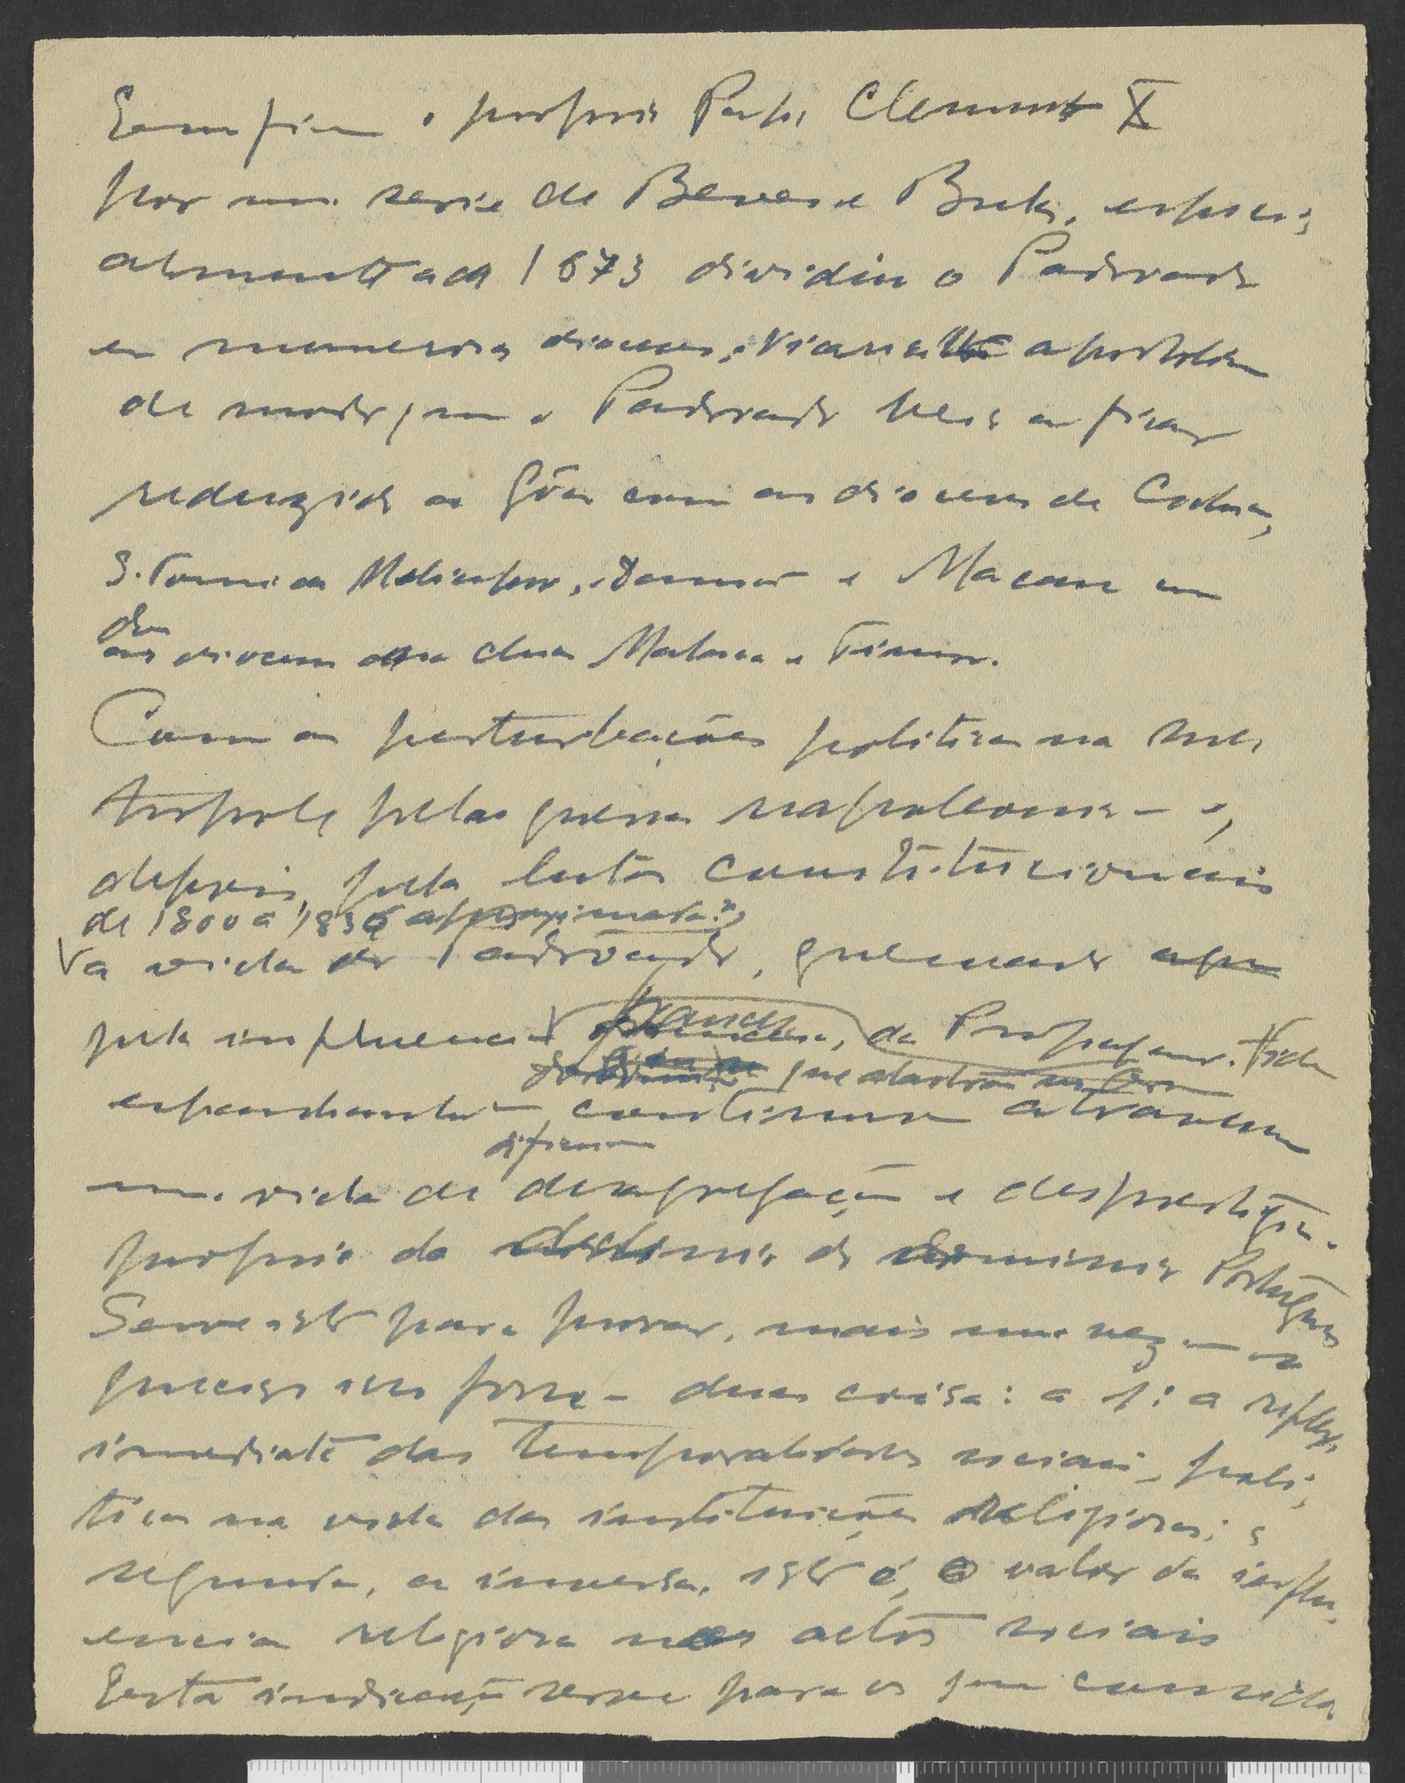 E em fim o proprio Papa Clemente X
por uma serie de Breves e Bulas, especi
almente a de 1673 dividiu o Padroado
em numerosas dioceses, e vicariatos apostolicos
de modo que o Padroado veio a ficar
reduzido a Gôa com as dioceses de Cochim,
S. Tomé de Meliapor, Damão e Macau com
as dioceses de Malaca e Timor.
Com as perturbações politicas na me
tropole pelas guerras napoleonicas e,
depois, pela lutas constitucionais
de 1800 a 1836 aproximada.te
a vida do Padroado, guerreado
pela influencia francesa, da Propaganda Fide
que alastrou
espandindo continua atravessa
dificil
uma vida de desagregação e desprestigio
proprio do dominio Portuguez
Serve isto para provar, mais uma vez
duas coisas: a 1ª a reflexo
imediato das temporalidades sociais, poli
ticas na vida das instituições religiosas; a
segunda, a inversa, isto é, o valor da influ
encia religiosa nos actos sociais
Esta indicação serve para os que consida